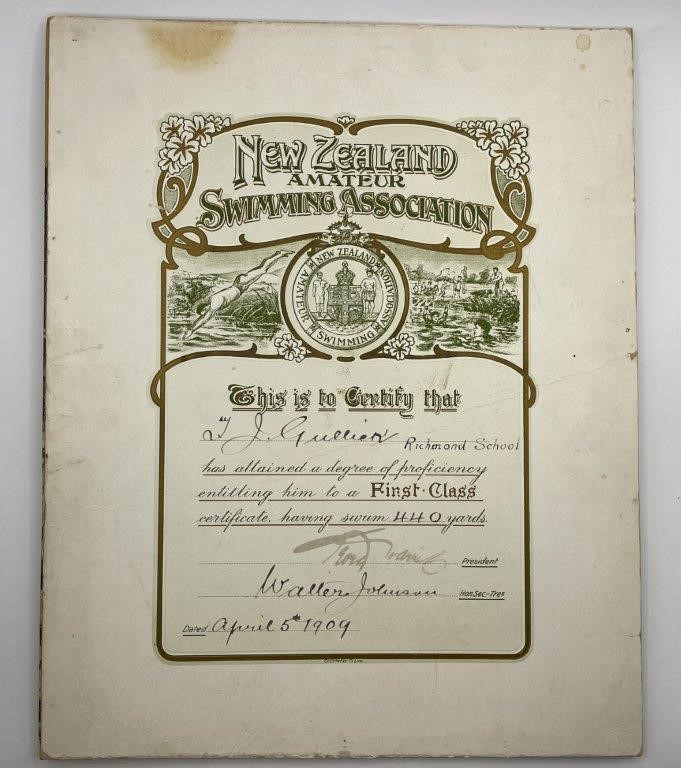 NEW ZEALAND
AMATEUR
SWIMMING ASSOCIATION
NEW ZEALAND AMATEUR SWIMMING ASSOCIATION
This is to Certify that
T J. Gullick Richmond School
has attained a degree of proficiency
entitling him to a First-Class
certificate, having swum 440 yards.
President
Walter Johnson Hon Sec-Tres
Dated April 5th 1909